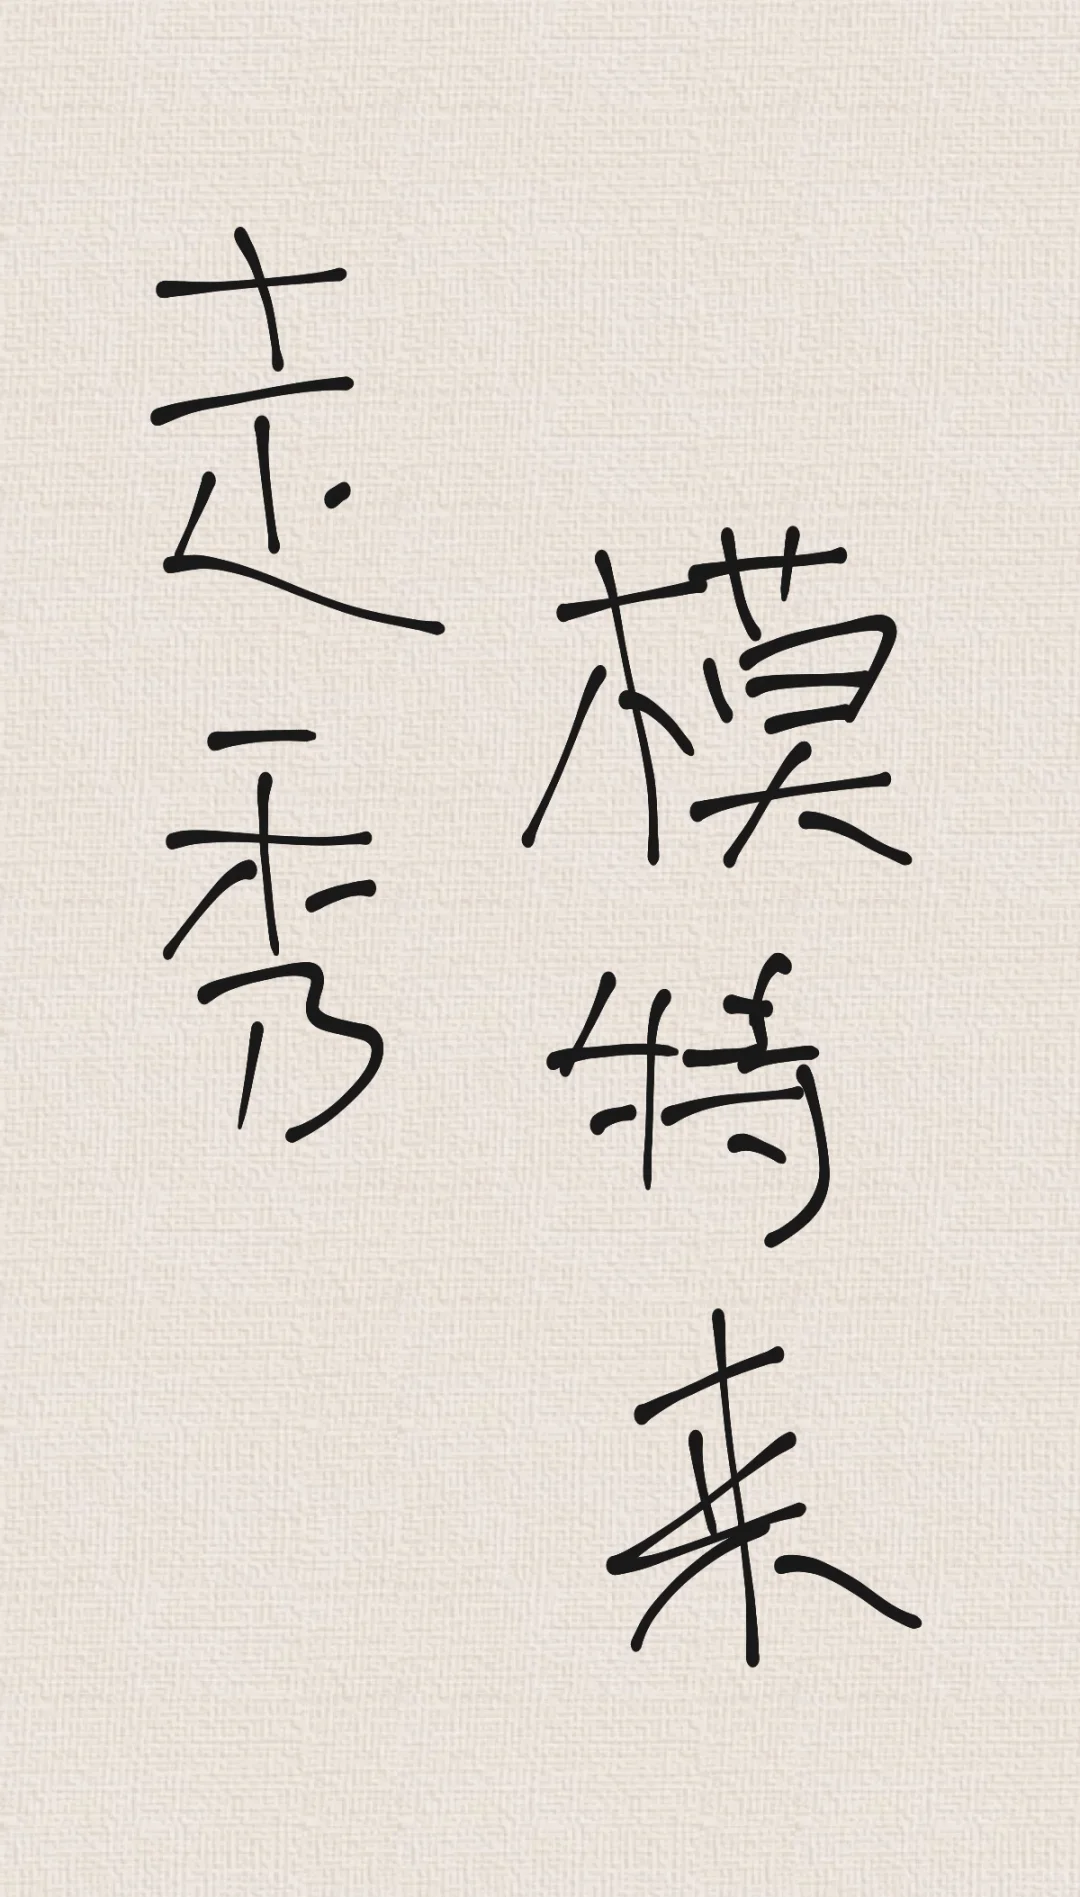 模特来
走秀